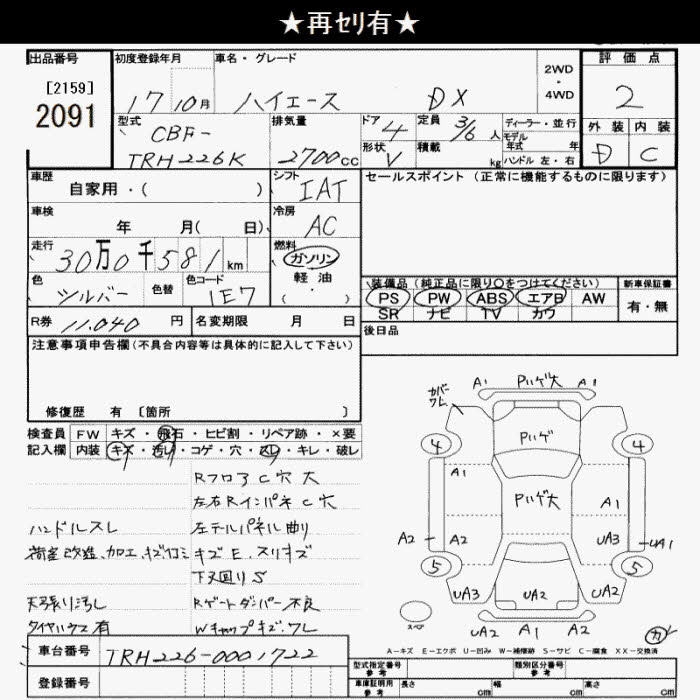 ★再ｾﾘ有★
出品番号
[2159]
2091
初度登録年月
17 10月
車名・グレード
ハイエース DX
2WD
・
4WD
評価点
2
外装 内装
D C
型式
CBF-
TRH226K
排気量
2700cc
ドア
4
形状
V
定員
3/6人
積載
kg
ディーラー・並行
モデル
年式 年
ハンドル 左・右
車歴
自家用・( )
シフト
IAT
セールスポイント(正常に機能するものに限ります)
車検
年 月( 日)
冷房
AC
走行
30万0千581km
燃料
ガソリン
軽油
・
( )
色
シルバー
色替
色コード
1E7
装備品(純正品に限り○をつけてください)
PS PW ABS エアB AW
SR ナビ TV カワ
新車保証書
有・無
R券 11,040円
名変期限 月 日
後日品
注意事項申告欄(不具合内容等は具体的に記入して下さい)
修復歴 有 〔箇所 〕
検査員
記入欄
FW キズ・飛石・ヒビ割・リペア跡・×要
内装 キズ・汚れ・コゲ・穴・スレ・キレ・破レ
RフロアC穴大
左右RインパネC穴
ハンドルスレ
左テールパネル曲り
荷室改造、加工、キズ汚ミ
キズE、スリキズ
下回りS
天張り汚レ
Rゲートダンパー不良
タイヤハウス有
Wキャップキズ、ワレ
車台番号 TRH226-0001722
登録番号
カバー
ワレ
A1 Pハゲ大 A1
4 Pハゲ 4
A1 Pハゲ大 A1
A2 A2 UA3 UA1
5 5
UA3 UA2 UA2
スペア
UA2 A1 A2
カ
A－キズ E－エクボ U－凹み W－補修跡 S－サビ C－腐食 XX－交換済
型式指定番号
参考
類別区分番号
参考
車庫証明用
参考
長さ cm 幅 cm 高さ cm